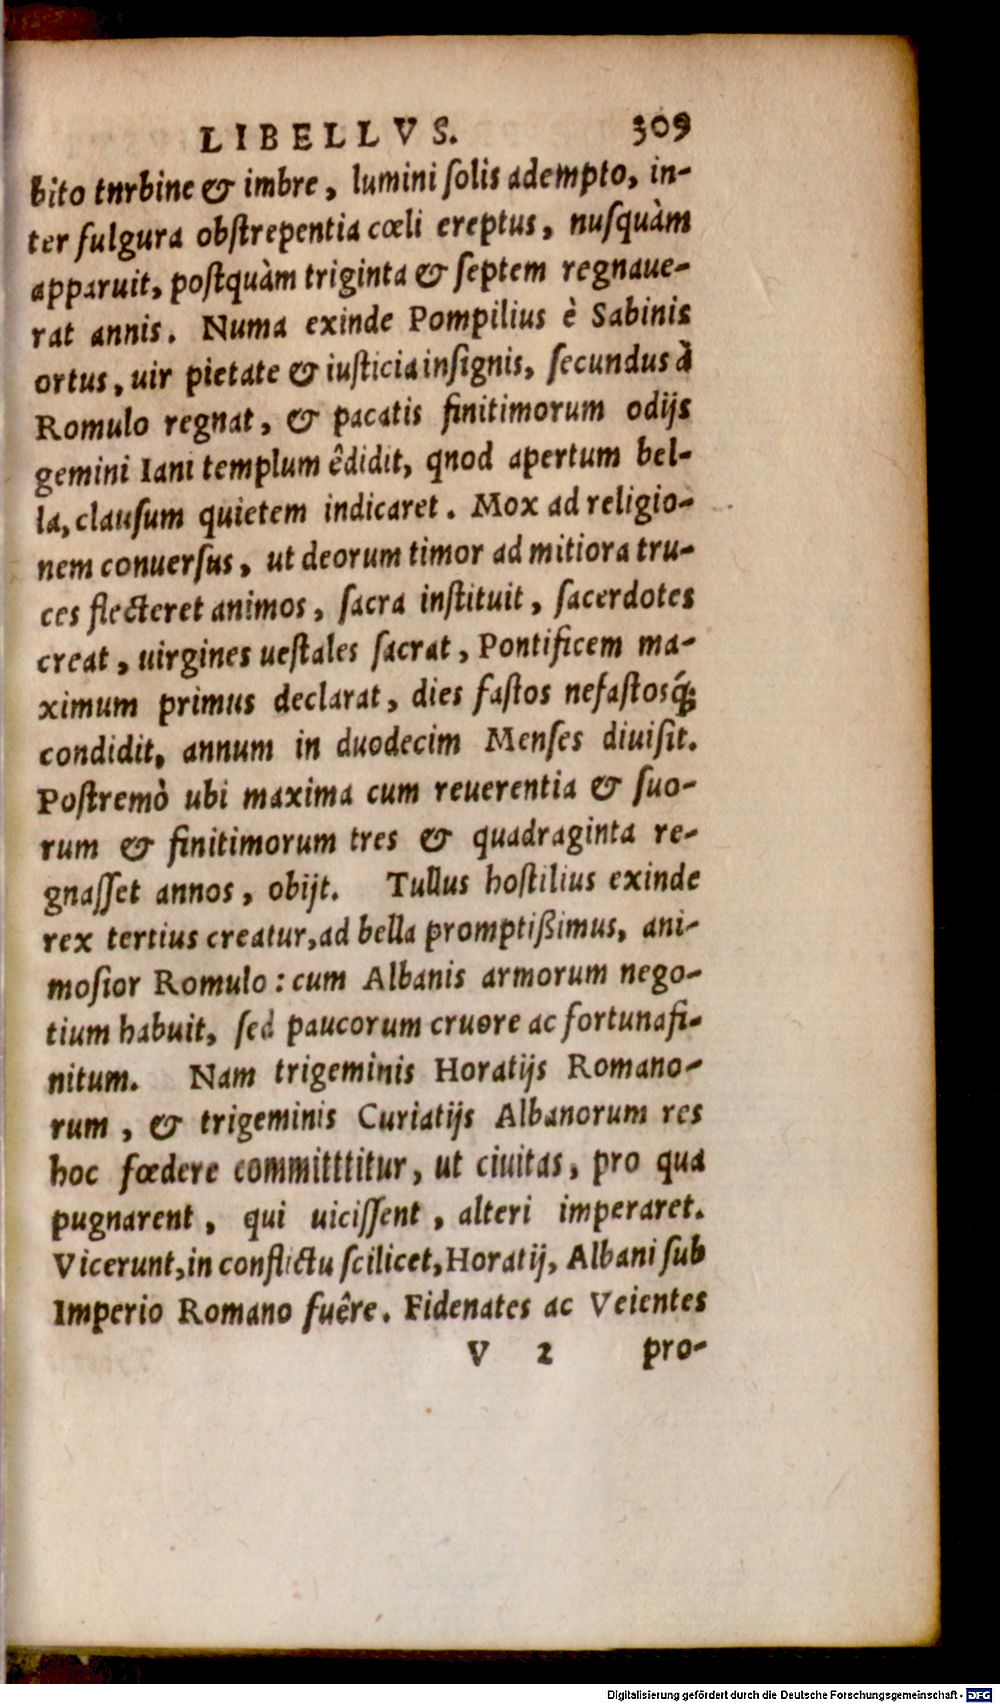 LIBELLVS. 309
bito tnrbine & imbre, lumini ſolis adempto, in-
ter fulgura obſtrepentia cœli ereptus, nuſquàm
apparuit, poſtquàm triginta & ſeptem regnaue-
rat annis. Numa exinde Pompilius è Sabinis
ortus, uir pietate & iuſticia inſignis, ſecundus à
Romulo regnat, & pacatis finitimorum odijs
gemini Iani templum êdidit, qnod apertum bel-
la, clauſum quietem indicaret. Mox ad religio-
nem conuerſus, ut deorum timor ad mitiora tru-
ces flecteret animos, ſacra inſtituit, ſacerdotes
creat, uirgines ueſtales ſacrat, Pontificem ma-
ximum primus declarat, dies faſtos nefaſtosq́;
condidit, annum in duodecim Menſes diuiſit.
Poſtremò ubi maxima cum reuerentia & ſuo-
rum & finitimorum tres & quadraginta re-
gnaſſet annos, obijt. Tullus hoſtilius exinde
rex tertius creatur, ad bella promptißimus, ani-
moſior Romulo: cum Albanis armorum nego-
tium habuit, ſed paucorum cruore ac fortuna fi-
nitum. Nam trigeminis Horatijs Romano-
rum, & trigeminis Curiatijs Albanorum res
hoc fœdere committtitur, ut ciuitas, pro qua
pugnarent, qui uiciſſent, alteri imperaret.
Vicerunt, in conflictu ſcilicet, Horatij, Albani ſub
Imperio Romano fuêre. Fidenates ac Veientes
V 2 pro-
Digitalisierung gefördert durch die Deutsche Forschungsgemeinschaft - DFG